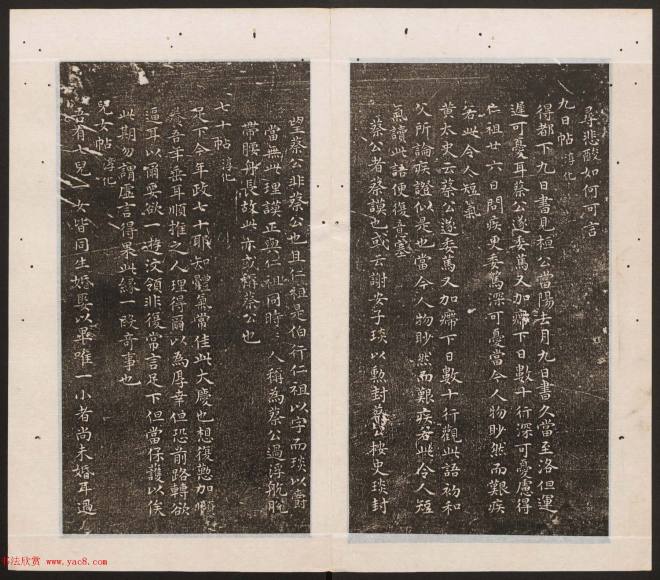 尋悲酸如何可言
九日帖 淳化
得都下九日書見桓公當陽去月九日書久當至洛但運
遲可憂耳蔡公遂委篤又加癤下日數十行深可憂慮得
仁祖廿六日問疾更委篤深可憂當今人物眇然而艱疾
若此令人短氣
黄太史云蔡公遂委篤又加癤下日數十行觀此語初和
父所論疾證似是也當今人物眇然而艱疾若此令人短
氣讀此語便復意塞
蔡公者蔡謨也或云謝安子琰以勲封蔡公按史琰封
望蔡公非蔡公也且仁祖是伯行仁祖以字而琰以爵
當無此理謨正與仁祖同時人稱為蔡公過浮航脫
帶腰舟長故此亦或稱蔡公也
七十帖 淳化
足下今年政七十耶知體氣常佳此大慶也想復懃加頤
養吾年垂耳順推之人理得爾以為厚幸但恐前路轉欲
逼耳以爾要欲一遊汶領非復常言足下但當保護以俟
此期勿謂虛言得果此緣一段奇事也
兒女帖 淳化
吾有七兒一女皆同生婚娶以畢唯一小者尚未婚耳過
书法欣赏 www.yac8.com